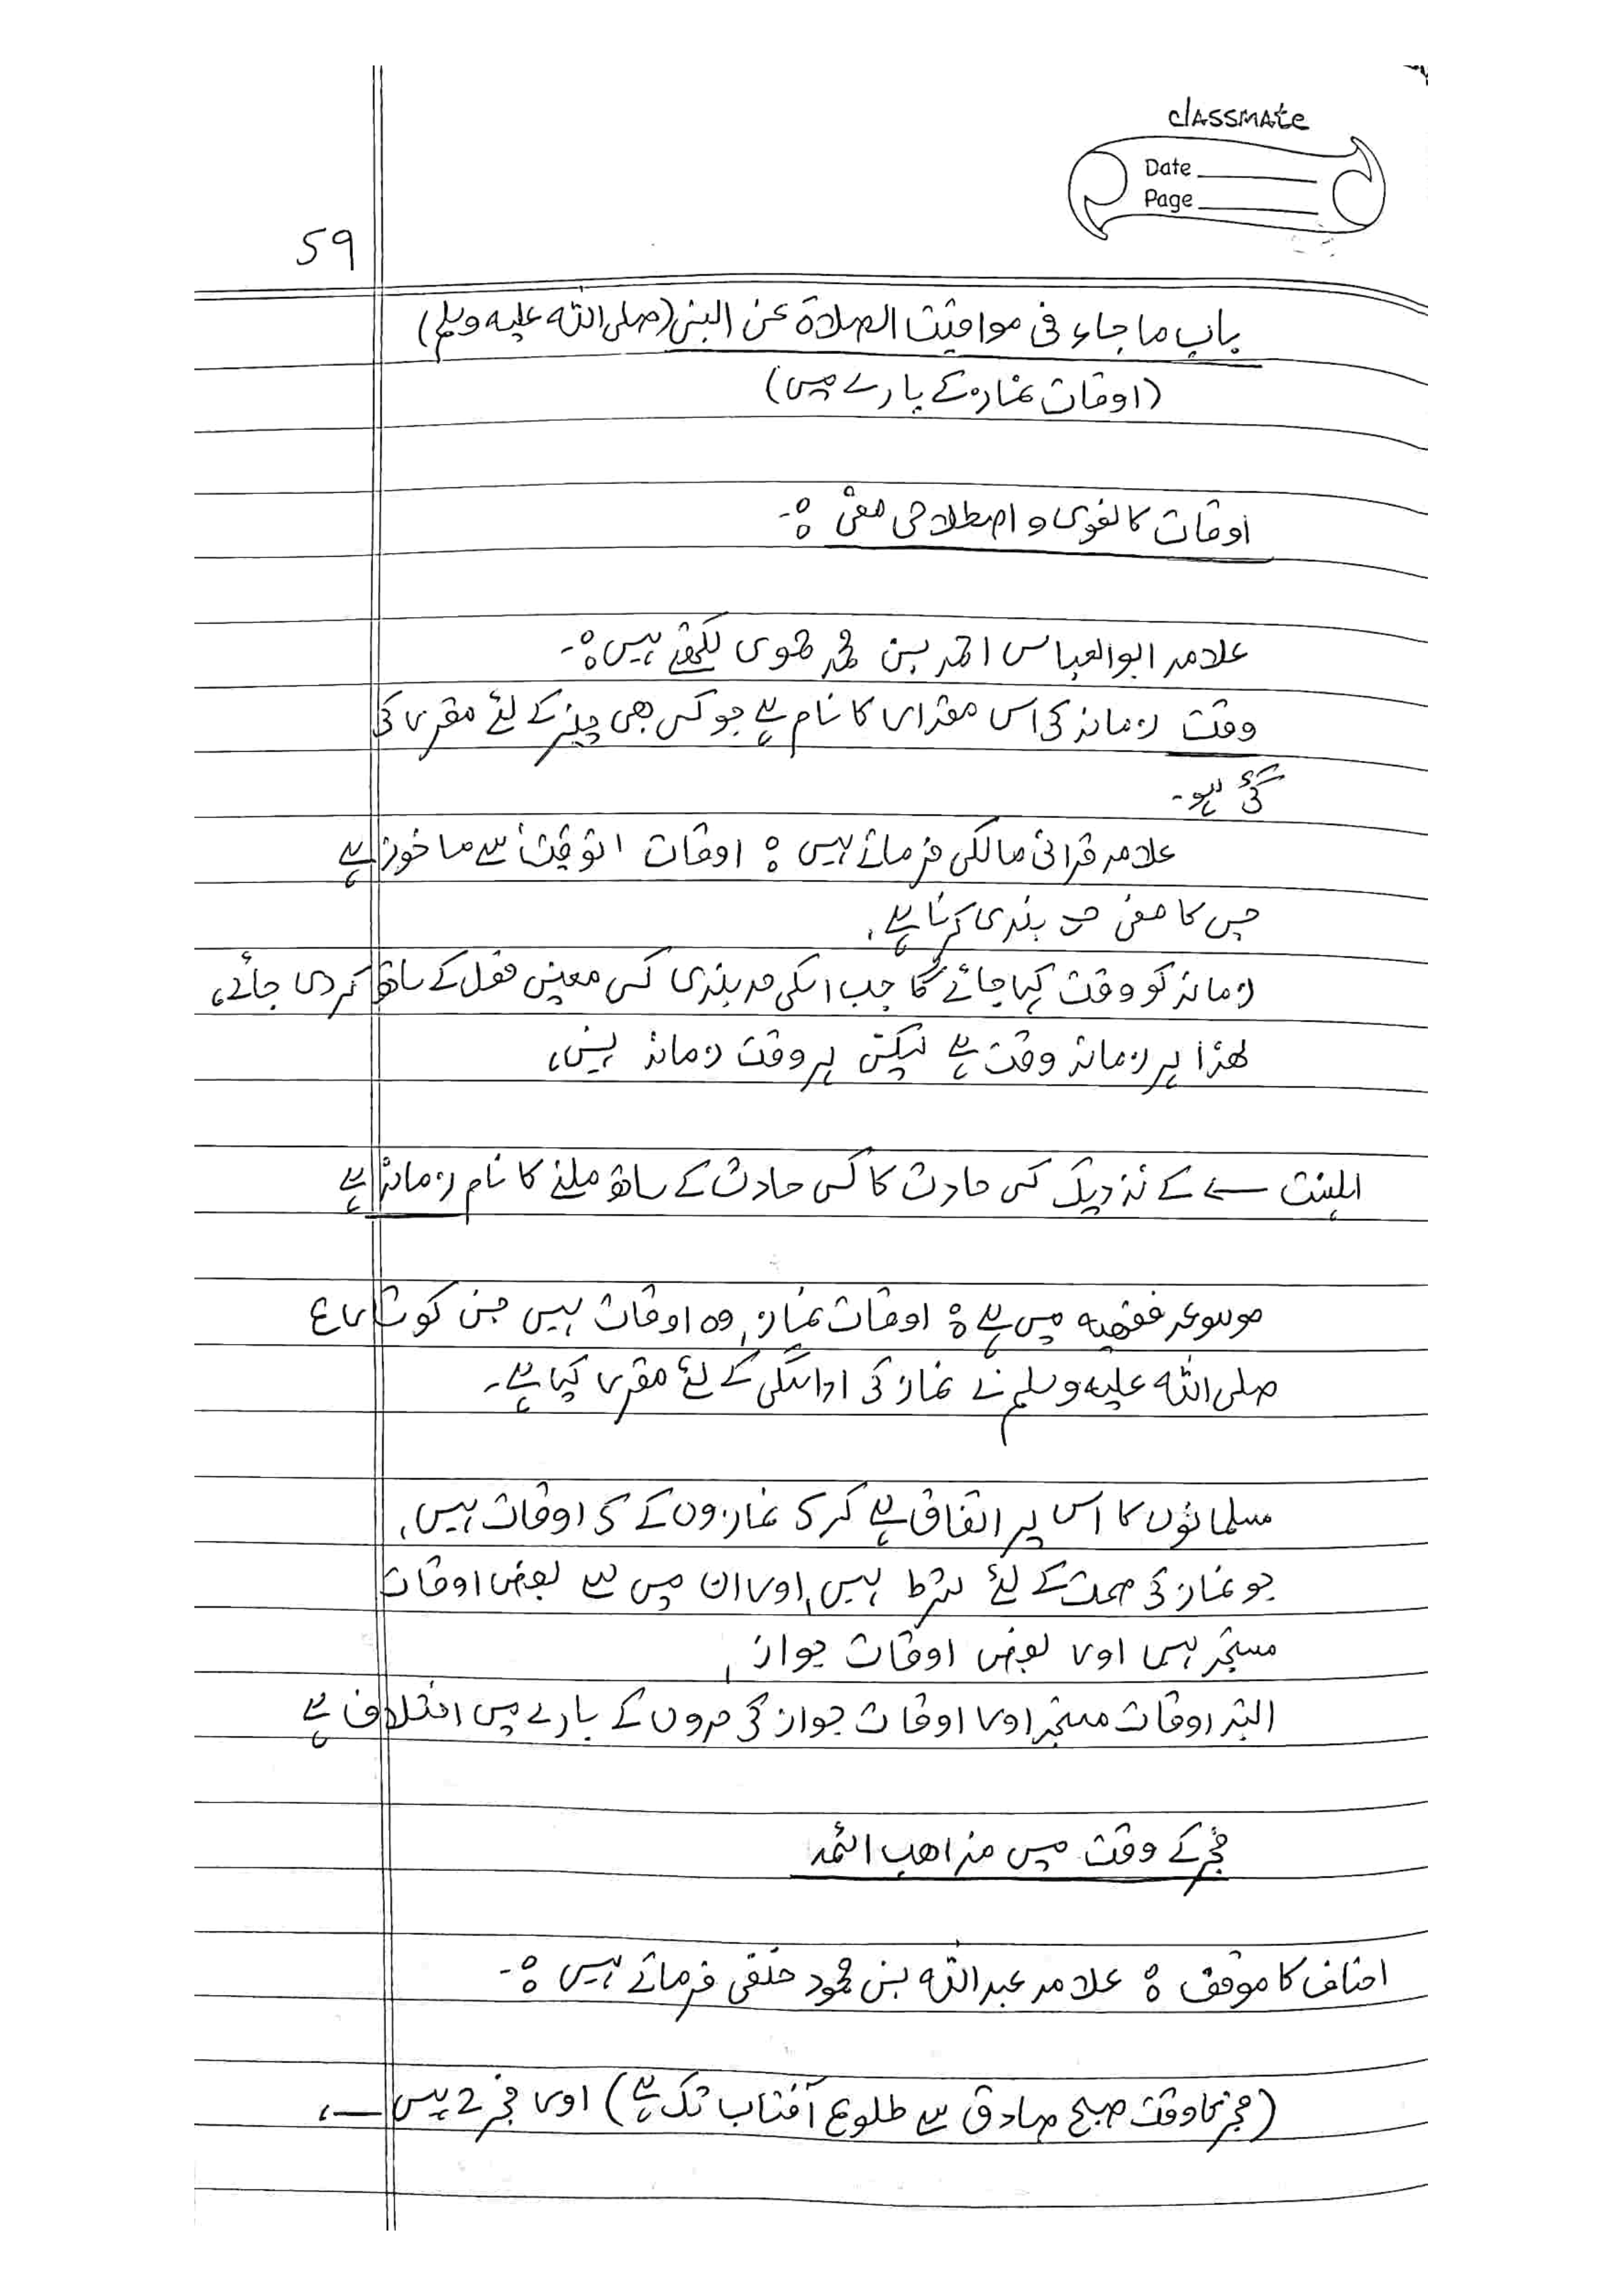 classmate
Date
Page
59
باب ما جاء فی مواقیت الصلاۃ عن النبی (صلی اللہ علیہ وسلم)
(اوقات نماز کے بارے میں)
اوقات کا لغوی و اصطلاحی معنی :-
علامہ ابوالعباس احمد بن محمد حموی لکھتے ہیں :-
وقت زمانہ کی اس مقدار کا نام ہے جو کسی بھی چیز کے لئے مقرر کی
گئی ہو۔
علامہ قرافی مالکی فرماتے ہیں : اوقات التوقیت سے ماخوذ ہے
جس کا معنی حد بندی کرنا ہے،
زمانہ کو وقت کہا جائے گا جب اسکی حد بندی کسی معین فعل کے ساتھ کر دی جائے،
لھذا ہر زمانہ وقت ہے لیکن ہر وقت زمانہ نہیں،
اہلسنت کے نزدیک کسی حادث کا کسی حادث کے ساتھ ملنے کا نام زمانہ ہے
موسوعہ فقھیہ میں ہے : اوقات نماز، وہ اوقات ہیں جن کو شارع
صلی اللہ علیہ وسلم نے نماز کی ادائگی کے لئے مقرر کیا ہے۔
مسلمانوں کا اس پر اتفاق ہے کہ 5 نمازوں کے 5 اوقات ہیں،
جو نماز کی صحت کے لئے شرط ہیں، اور ان میں سے بعض اوقات
مستحبہ ہیں اور بعض اوقات جواز،
البتہ اوقات مستحبہ اور اوقات جواز کی حدوں کے بارے میں اختلاف ہے
فجر کے وقت میں مذاھب ائمہ
احناف کا موقف : علامہ عبداللہ بن محمود حنفی فرماتے ہیں :-
(فجر کا وقت صبح صادق سے طلوع آفتاب تک ہے) اور فجر 2 ہیں ،